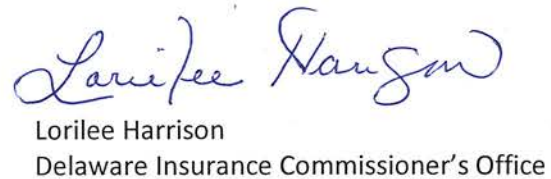 Lorilee Harrison
Lorilee Harrison
Delaware Insurance Commissioner's Office